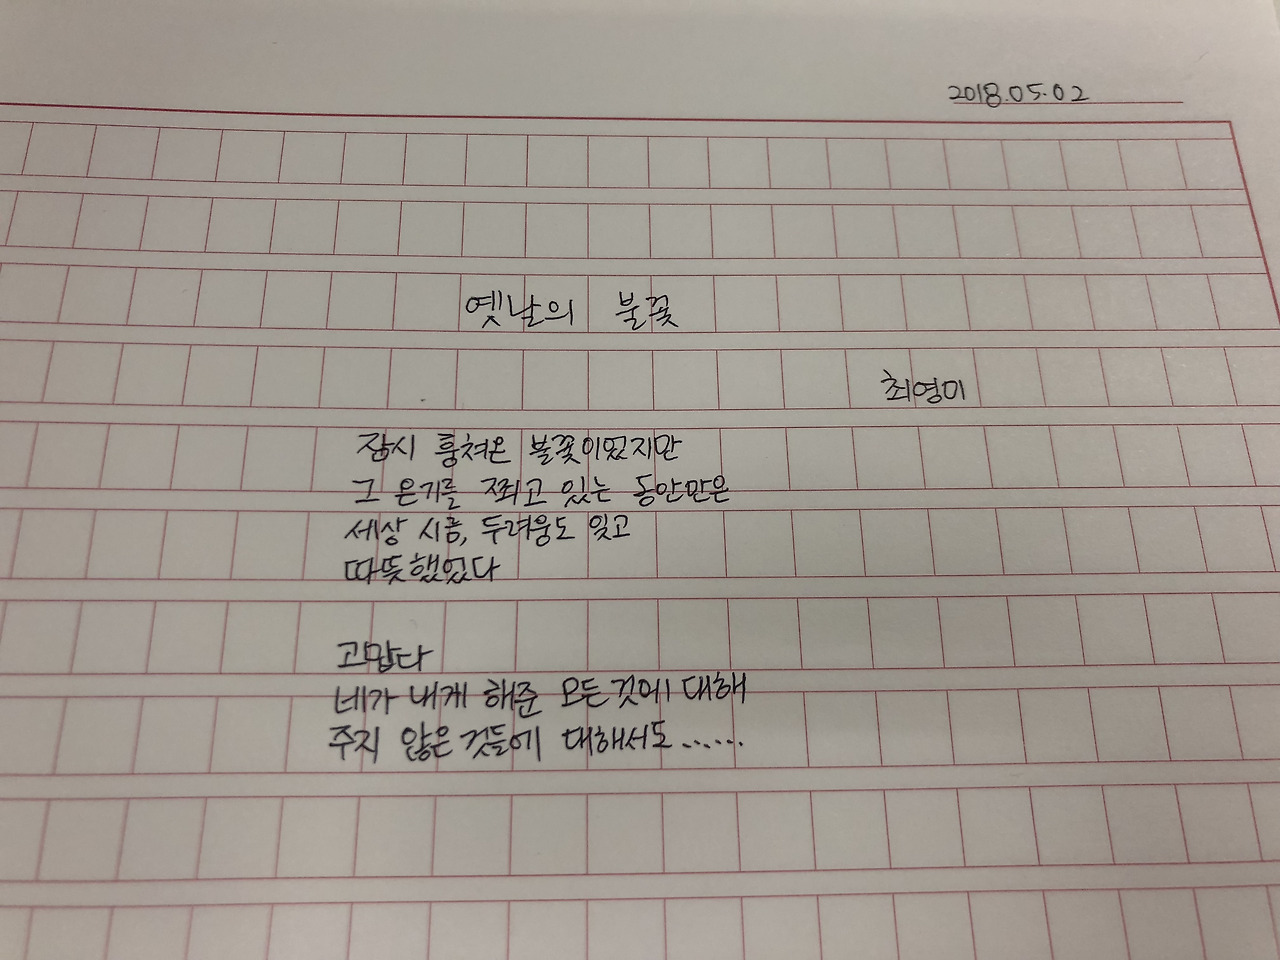 2018.05.02
옛날의 불꽃
최영미
잠시 훔쳐온 불꽃이었지만
그 온기를 쬐고 있는 동안만은
세상 시름, 두려움도 잊고
따뜻했었다
고맙다
네가 내게 해준 모든 것에 대해
주지 않은 것들에 대해서도......